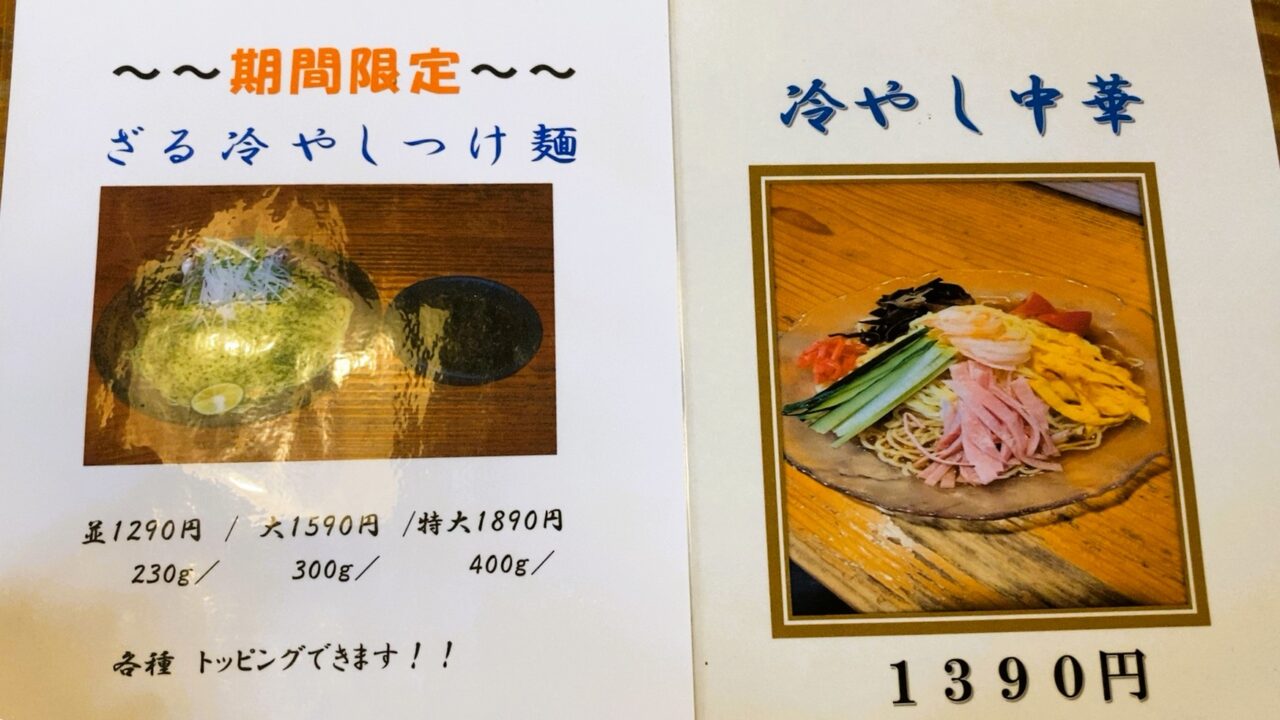 ～～期間限定～～
ざる冷やしつけ麺
並1290円 / 大1590円 /特大1890円
230g／ 300g／ 400g／
各種 トッピングできます！！
冷やし中華
1390円